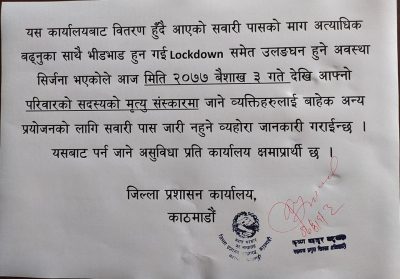 यस कार्यालयबाट वितरण हुँदै आएको सवारी पासको माग अत्याधिक
बढ्नुका साथै भीडभाड हुन गई Lockdown समेत उलङघन हुने अवस्था
सिर्जना भएकोले आज मिति २०७७ बैशाख ३ गते देखि आफ्नो
परिवारको सदस्यको मृत्यु संस्कारमा जाने व्यक्तिहरुलाई बाहेक अन्य
प्रयोजनको लागि सवारी पास जारी नहुने व्यहोरा जानकारी गराईन्छ ।
यसबाट पर्न जाने असुविधा प्रति कार्यालय क्षमाप्रार्थी छ ।
जिल्ला प्रशासन कार्यालय,
काठमाडौं